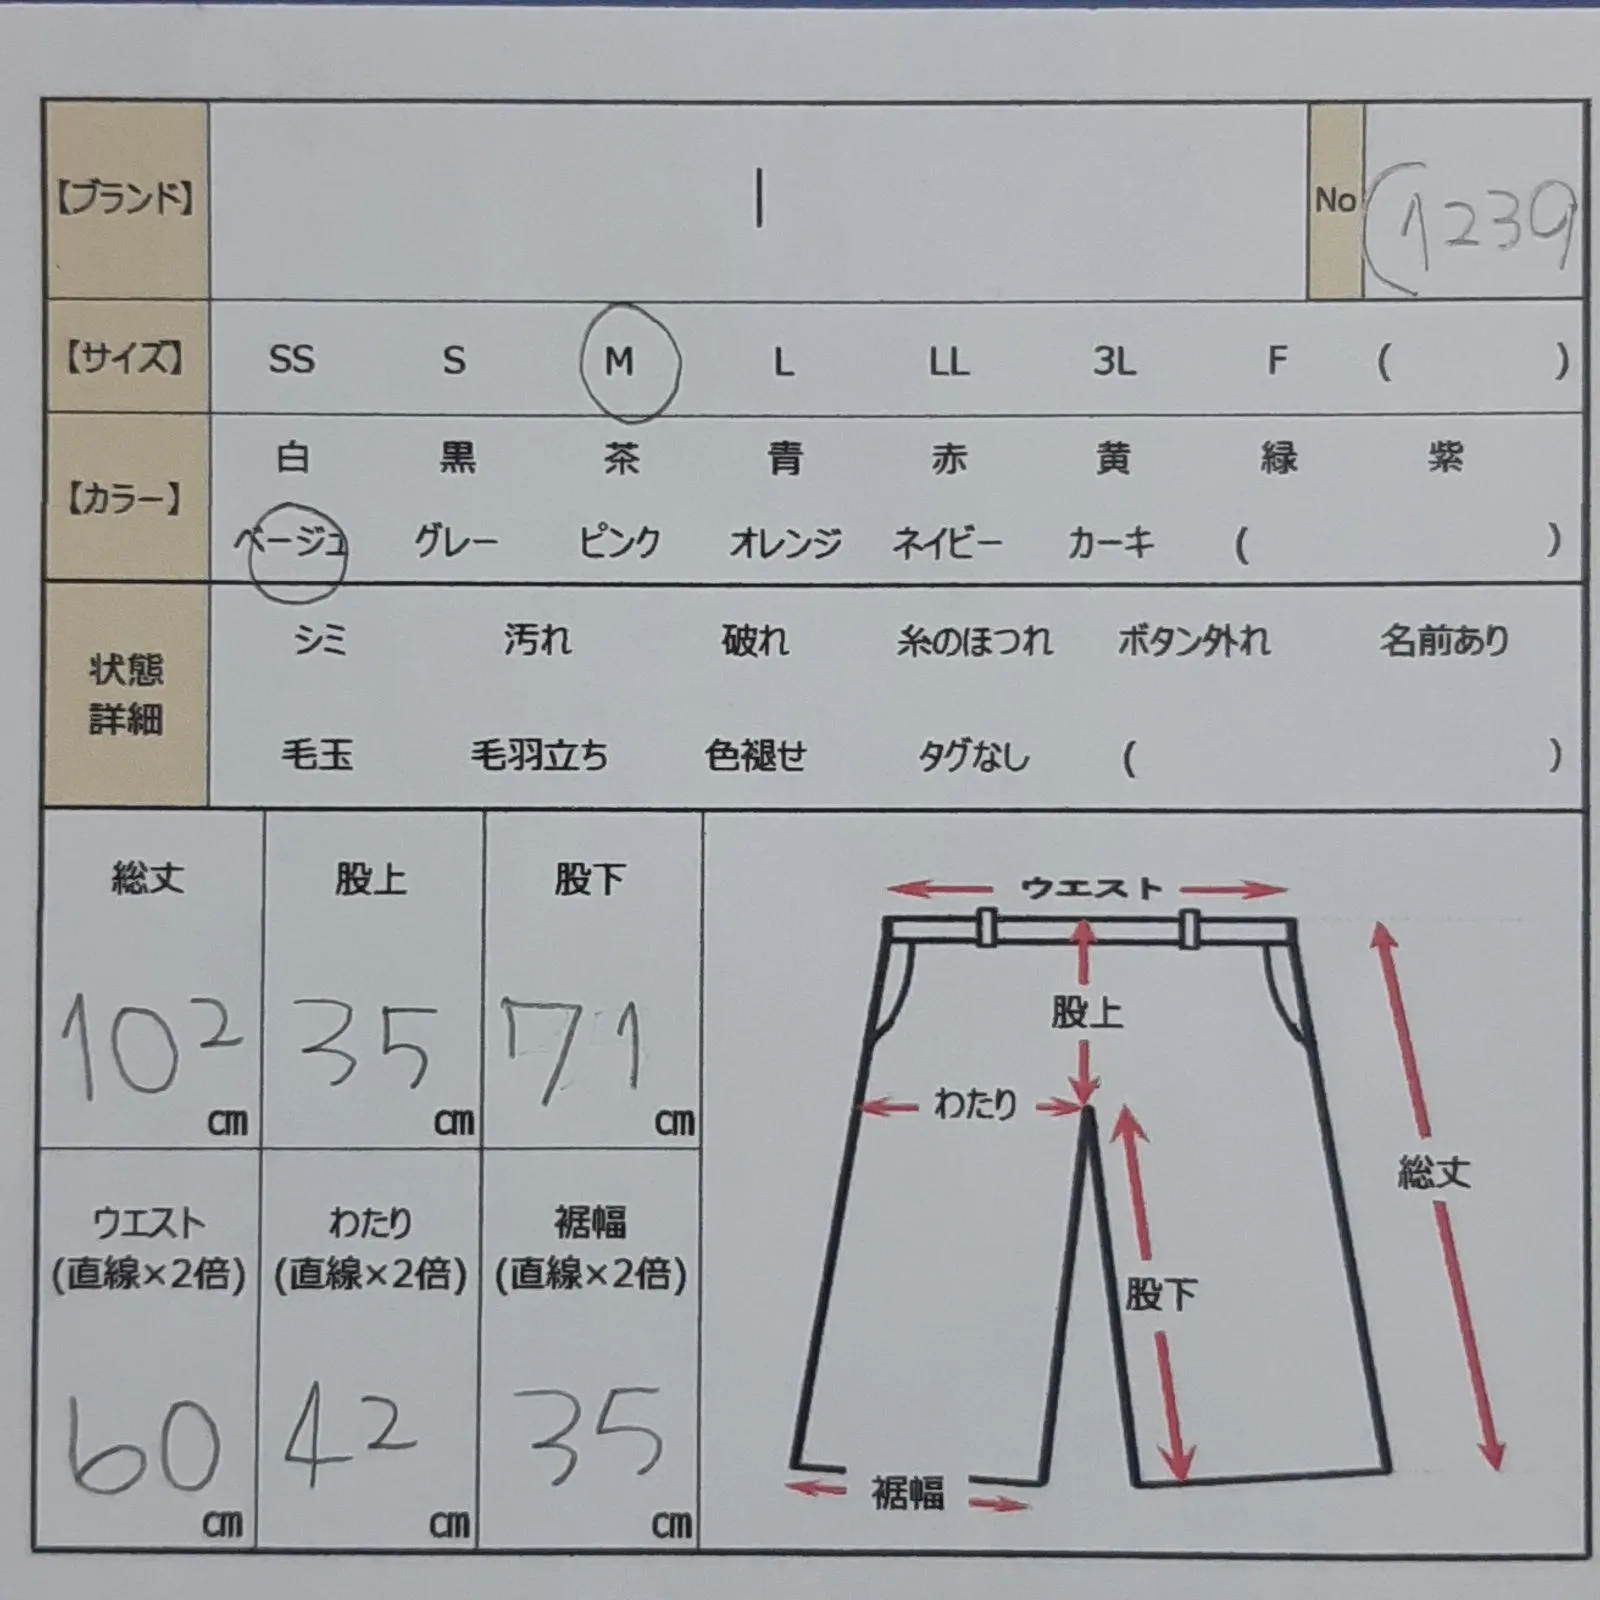 【ブランド】 | No (1239
【サイズ】 SS S M L LL 3L F ( )
【カラー】 白 黒 茶 青 赤 黄 緑 紫
ベージュ グレー ピンク オレンジ ネイビー カーキ ( )
状態
詳細
シミ 汚れ 破れ 糸のほつれ ボタン外れ 名前あり
毛玉 毛羽立ち 色褪せ タグなし ( )
総丈 股上 股下
102 cm 35 cm 71 cm
ウエスト わたり 裾幅
(直線×2倍) (直線×2倍) (直線×2倍)
60 cm 42 cm 35 cm
ウエスト
股上
わたり
総丈
股下
裾幅